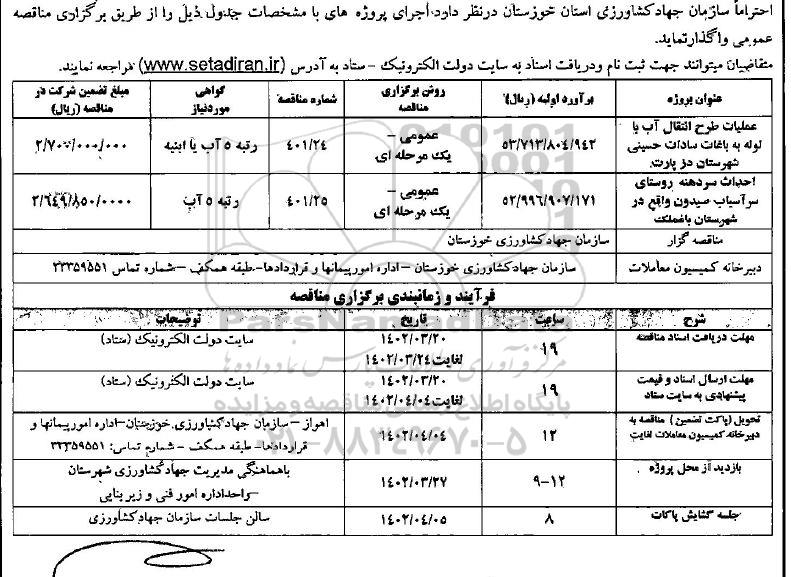 احتراماً سازمان جهادکشاورزی استان خوزستان درنظر دارد،اجرای پروژه های با مشخصات جدول ذیل را از طریق برگزاری مناقصه
عمومی واگذارنماید.
متقاضیان میتوانند جهت ثبت نام ودریافت اسناد به سایت دولت الکترونیک – ستاد به آدرس (www.setadiran.ir) مراجعه نمایند.
عنوان پروژه برآورد اولیه (ریال) روش برگزاری مناقصه شماره مناقصه گواهی موردنیاز مبلغ تضمین شرکت در مناقصه (ریال)
عملیات طرح انتقال آب با
لوله به باغات سادات حسینی
شهرستان دز پارت
۵۳/۷۱۳/۸۰۴/۹۴۲
عمومی –
یک مرحله ای
۴۰۱/۲۴
رتبه ۵ آب یا ابنیه
۲/۷۰۰/۰۰۰/۰۰۰
احداث سردهنه روستای
سرآسیاب صیدون واقع در
شهرستان باغملک
۵۲/۹۹۶/۹۰۷/۱۷۱
عمومی –
یک مرحله ای
۴۰۱/۲۵
رتبه ۵ آب
۲/۶۴۹/۸۵۰/۰۰۰۰
مناقصه گزار سازمان جهادکشاورزی خوزستان
دبیرخانه کمیسیون معاملات سازمان جهادکشاورزی خوزستان –اداره امورپیمانها و قراردادها–طبقه همکف –شماره تماس ۳۳۳۵۹۵۵۱
فرآیند و زمانبندی برگزاری مناقصه
شرح ساعت تاریخ توضیحات
مهلت دریافت اسناد مناقصه ۱۹ ۱۴۰۲/۰۳/۲۰ لغایت ۱۴۰۲/۰۳/۲۴ سایت دولت الکترونیک (ستاد)
مهلت ارسال اسناد و قیمت
پیشنهادی به سایت ستاد
۱۹
۱۴۰۲/۰۳/۲۰
لغایت ۱۴۰۲/۰۴/۰۴
سایت دولت الکترونیک (ستاد)
تحویل (پاکت تضمین) مناقصه به
دبیرخانه کمیسیون معاملات لغایت
۱۲
۱۴۰۲/۰۴/۰۴
اهواز –سازمان جهادکشاورزی خوزستان–اداره امورپیمانها و
قراردادها– طبقه همکف – شماره تماس: ۳۳۳۵۹۵۵۱
بازدید از محل پروژه
۹–۱۲
۱۴۰۲/۰۳/۲۷
باهماهنگی مدیریت جهادکشاورزی شهرستان
–واحداداره امور فنی و زیربنایی
جلسه گشایش پاکات ۸ ۱۴۰۲/۰۴/۰۵ سالن جلسات سازمان جهادکشاورزی
ParsNamadData
پایگاه اطلاع رسانی مناقصه و مزایده
۰۲۱-۸۸۳۴۹۶۷۰-۵